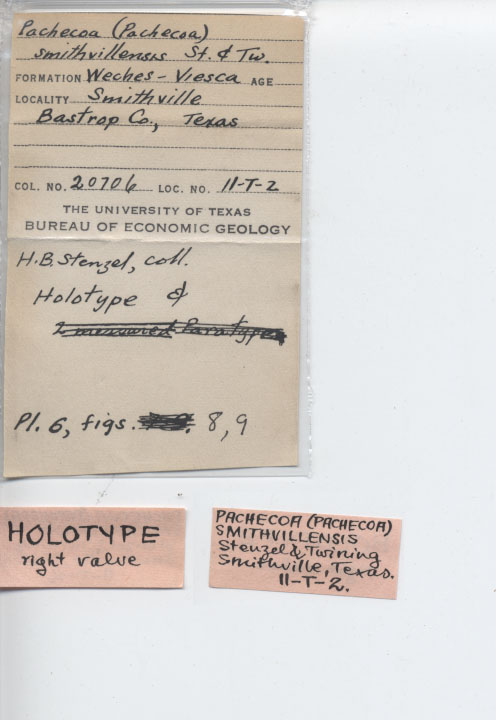 Pachecoa (Pachecoa)
smithvillensis St. & Tw.
FORMATION Weches - Viesca AGE
LOCALITY Smithville
Bastrop Co., Texas
COL. NO. 20706 LOC. NO. 11-T-2
THE UNIVERSITY OF TEXAS
BUREAU OF ECONOMIC GEOLOGY
H.B. Stenzel, coll.
Holotype &
2 measured Paratypes
Pl. 6, figs. 8, 9
HOLOTYPE
right valve
PACHECOA (PACHECOA)
SMITHVILLENSIS
Stenzel & Twining
Smithville, Texas.
11-T-2.